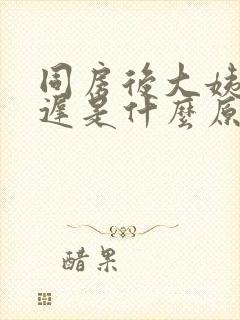 同房後大姨
遲是什麼原
醋果